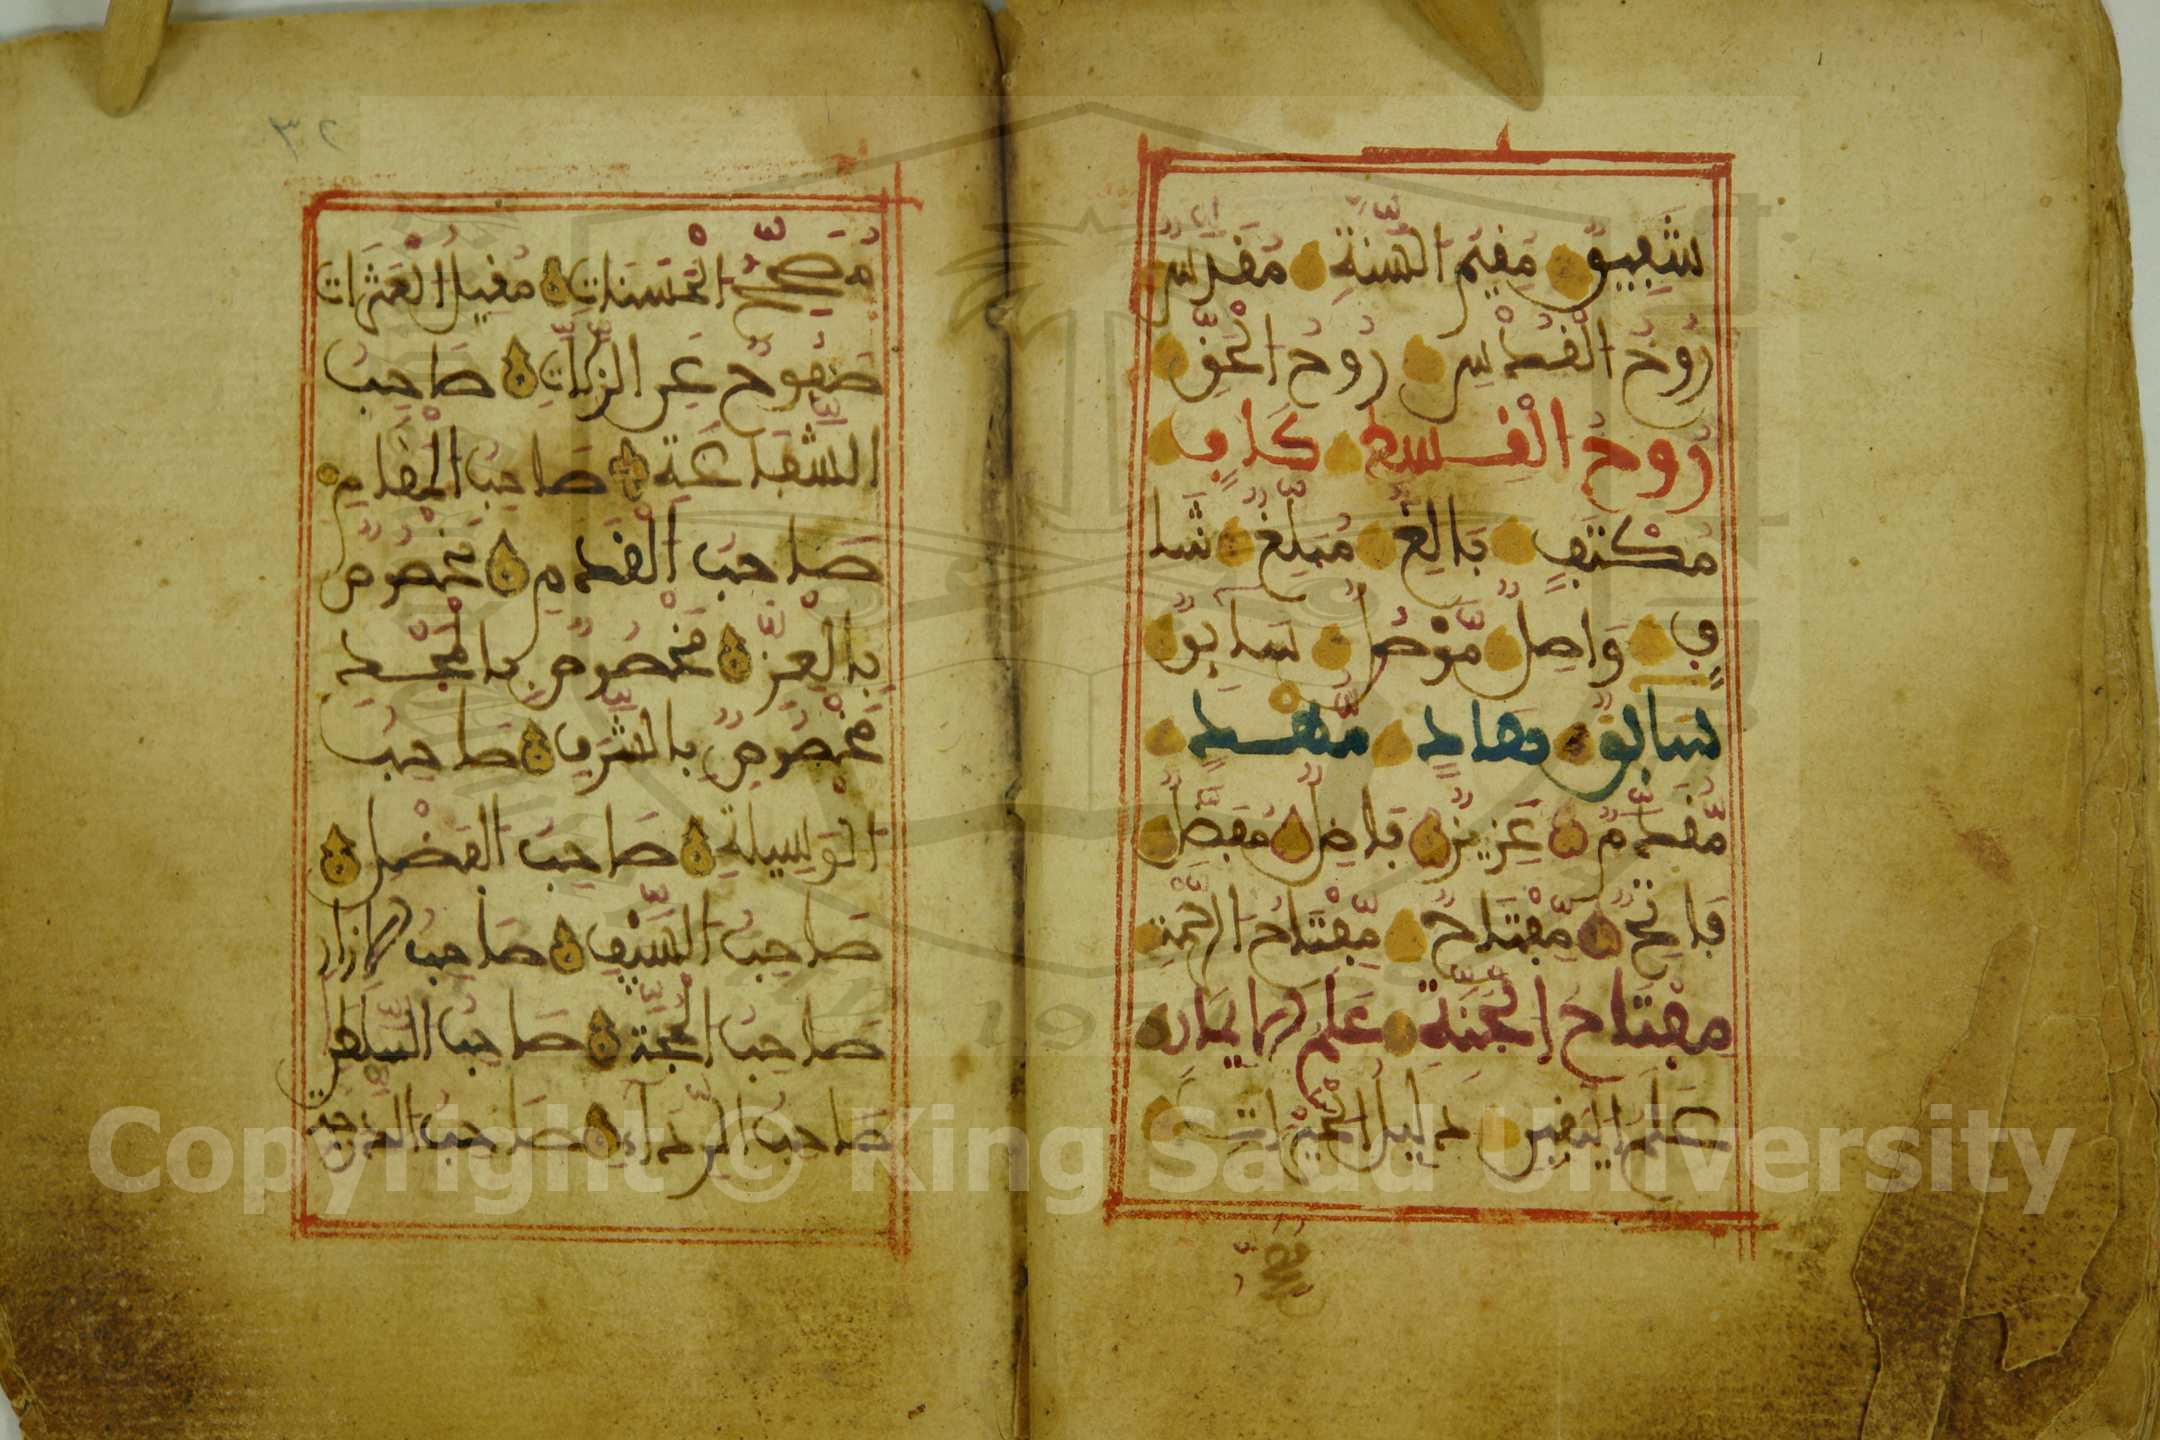 شفيق مقيم السنة مقدس
روح القدس روح الحق
روح القسط كاف
مكتف بالغ مبلغ شا
ف واصل موصل سابق
سابق وهاد مهد
مقدم عزيز فاضل مفضل
فاتح مفتاح مفتاح الرحمة
مفتاح الجنة علم الايمان
علم اليقين دليل الخيرات
٣٢
مصحح الحسنات مقيل العثرات
صفوح عن الزلات صاحب
الشفاعة صاحب المقام
صاحب القدم مخصوص
بالعز مخصوص بالمجد
مخصوص بالشرف صاحب
الوسيلة صاحب الفضل
صاحب السيف صاحب الازار
صاحب الحجة صاحب السلطن
صاحب الرداء صاحب الدرجة
Copyright © King Saud University